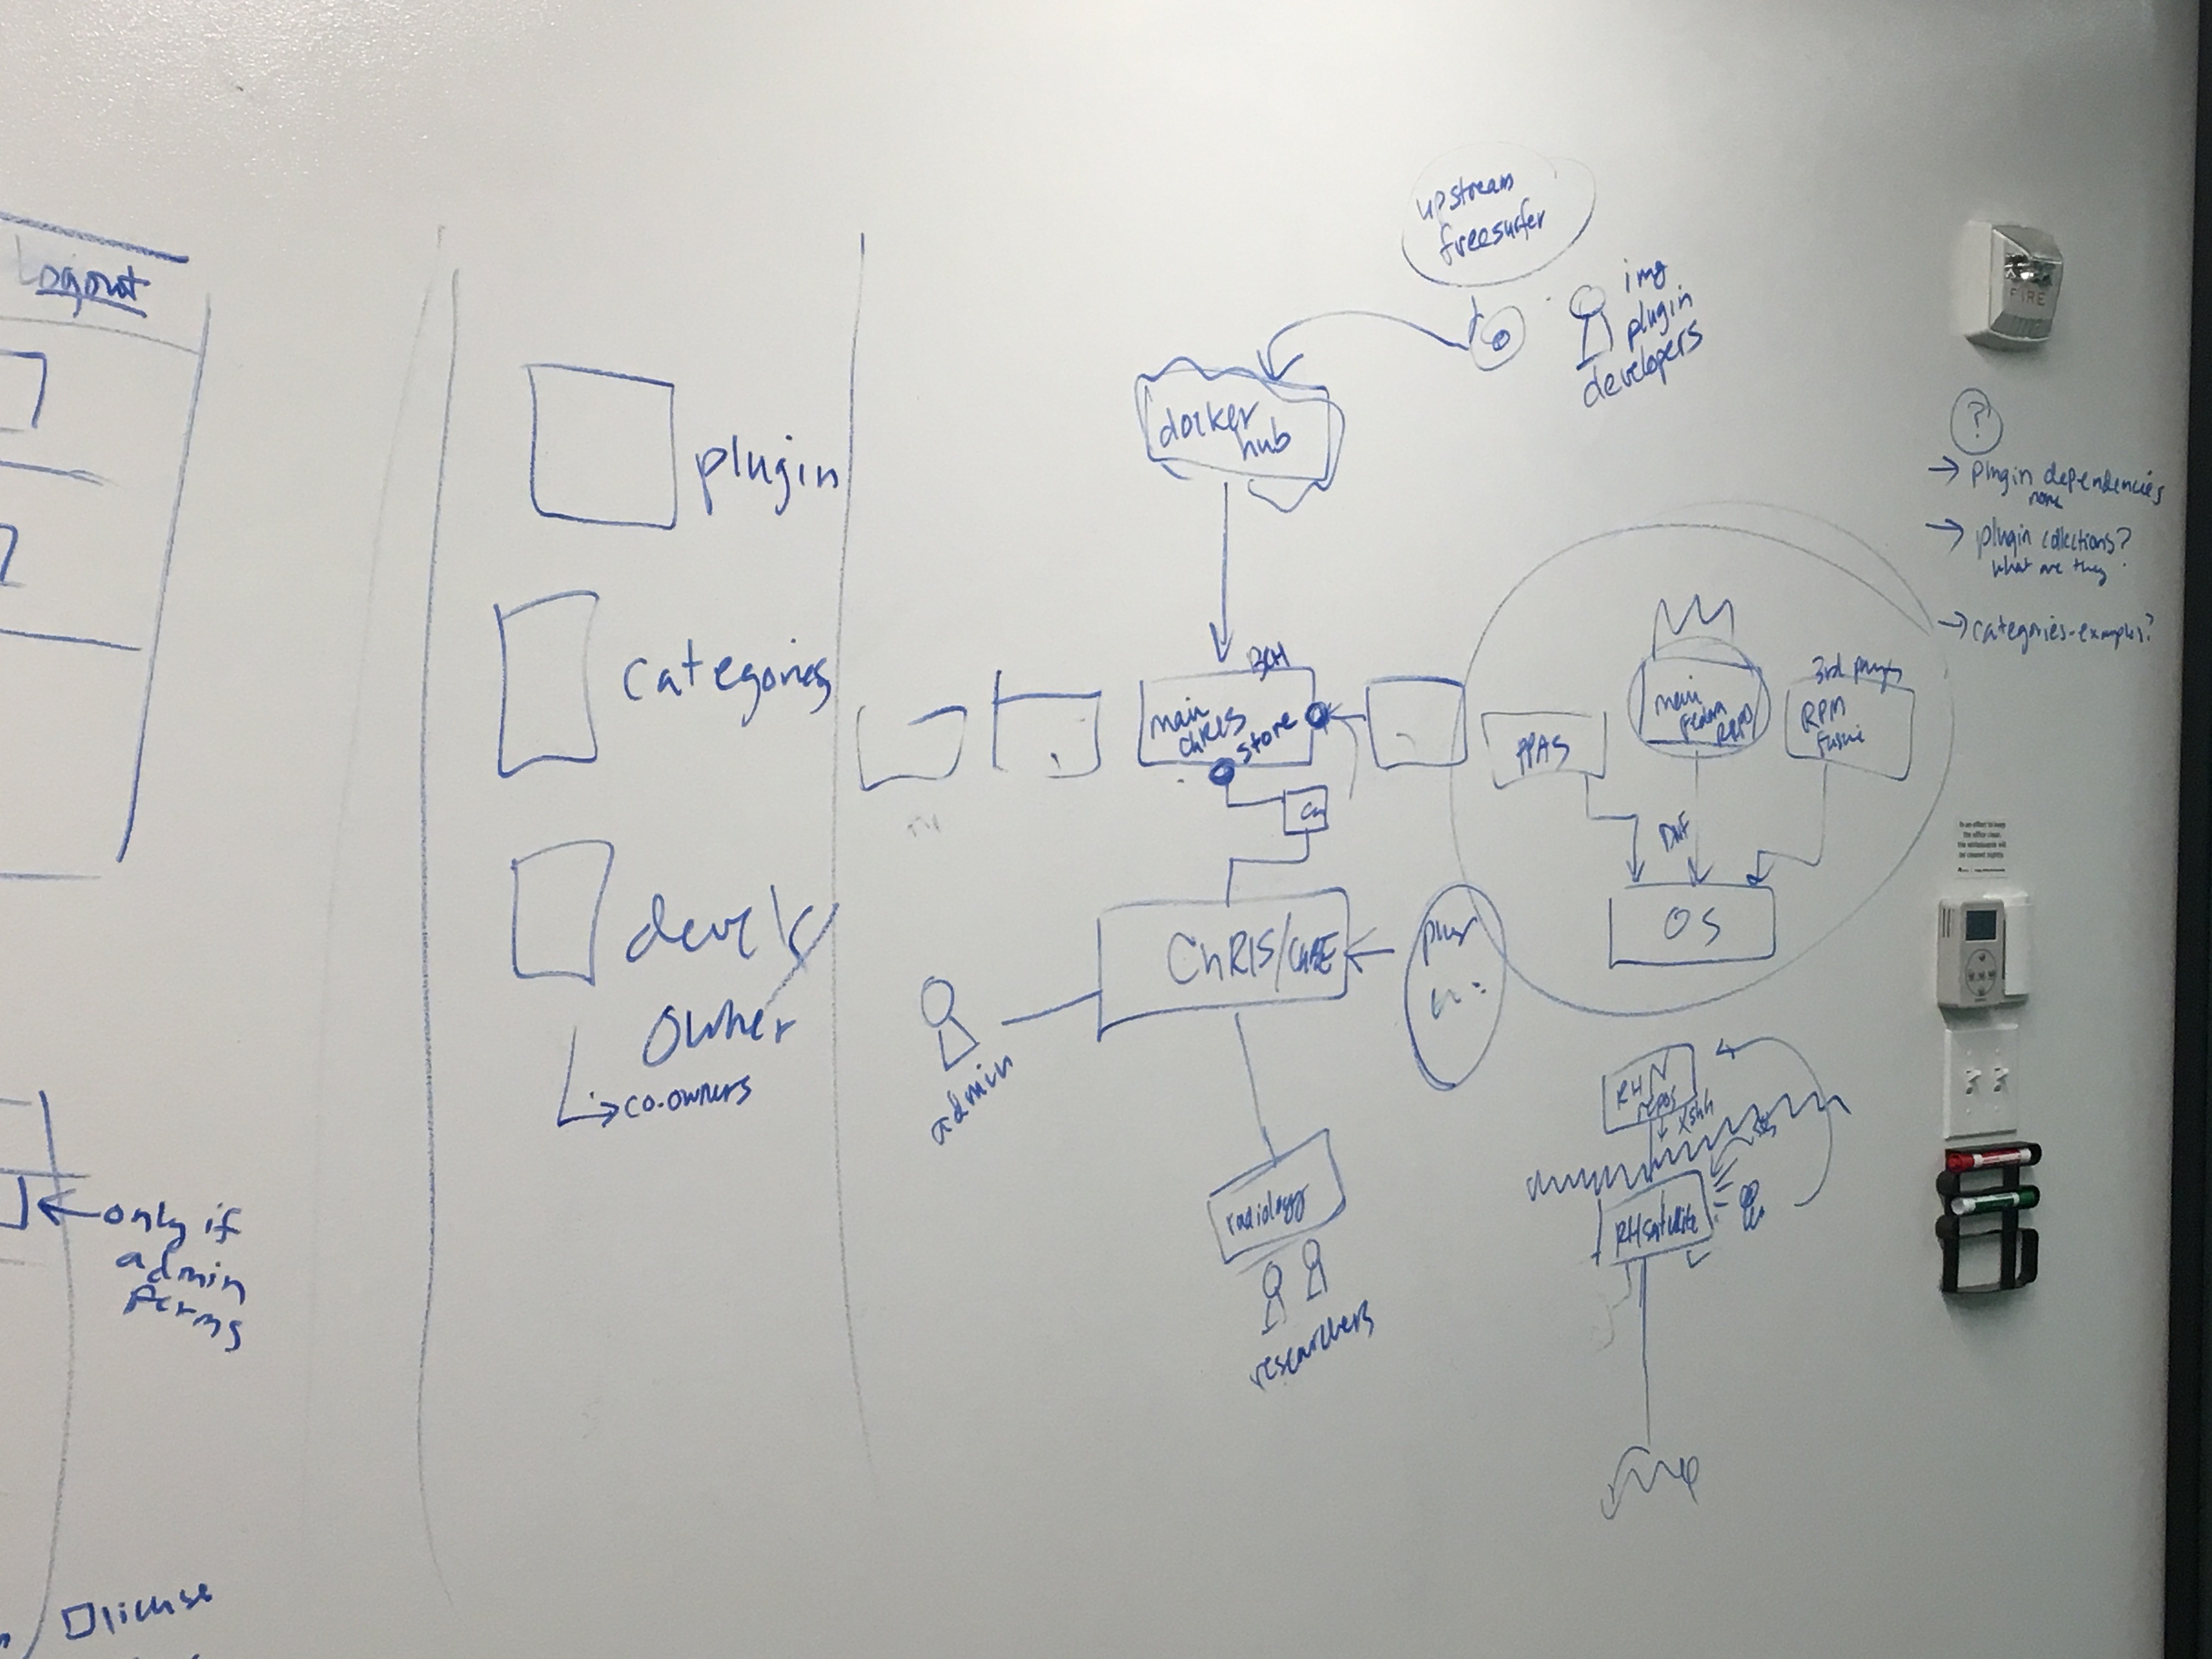 Logout
only if
admin
perms
license
plugin
categories
owner
co-owners
upstream
freesurfer
img
plugin
developers
docker
hub
BCH
main
ChRIS
store
ChRIS/CUBE
admin
radiology
researchers
PPAS
main
Fedora
Repo
3rd party
RPM
Fusion
DNF
OS
RHN
repos
RH satellite
?
→ plugin dependencies
none
→ plugin collections?
what are they
→ categories-examples?
FIRE